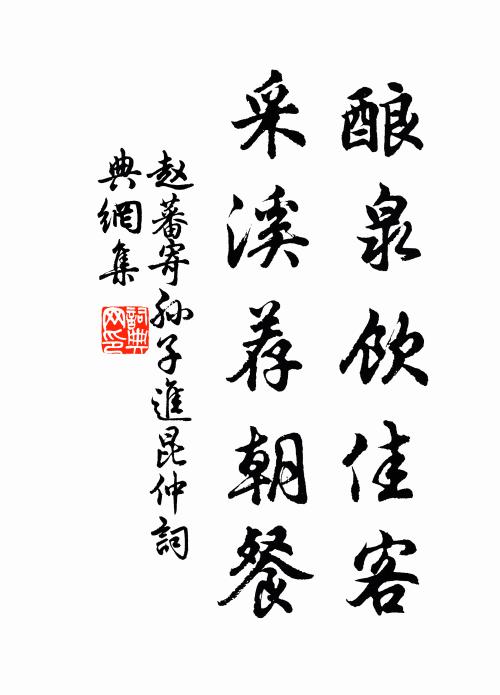 酿泉饮佳客
采溪荐朝餐
赵蕃寄孙子進昆仲詞
典網集
詞典网印